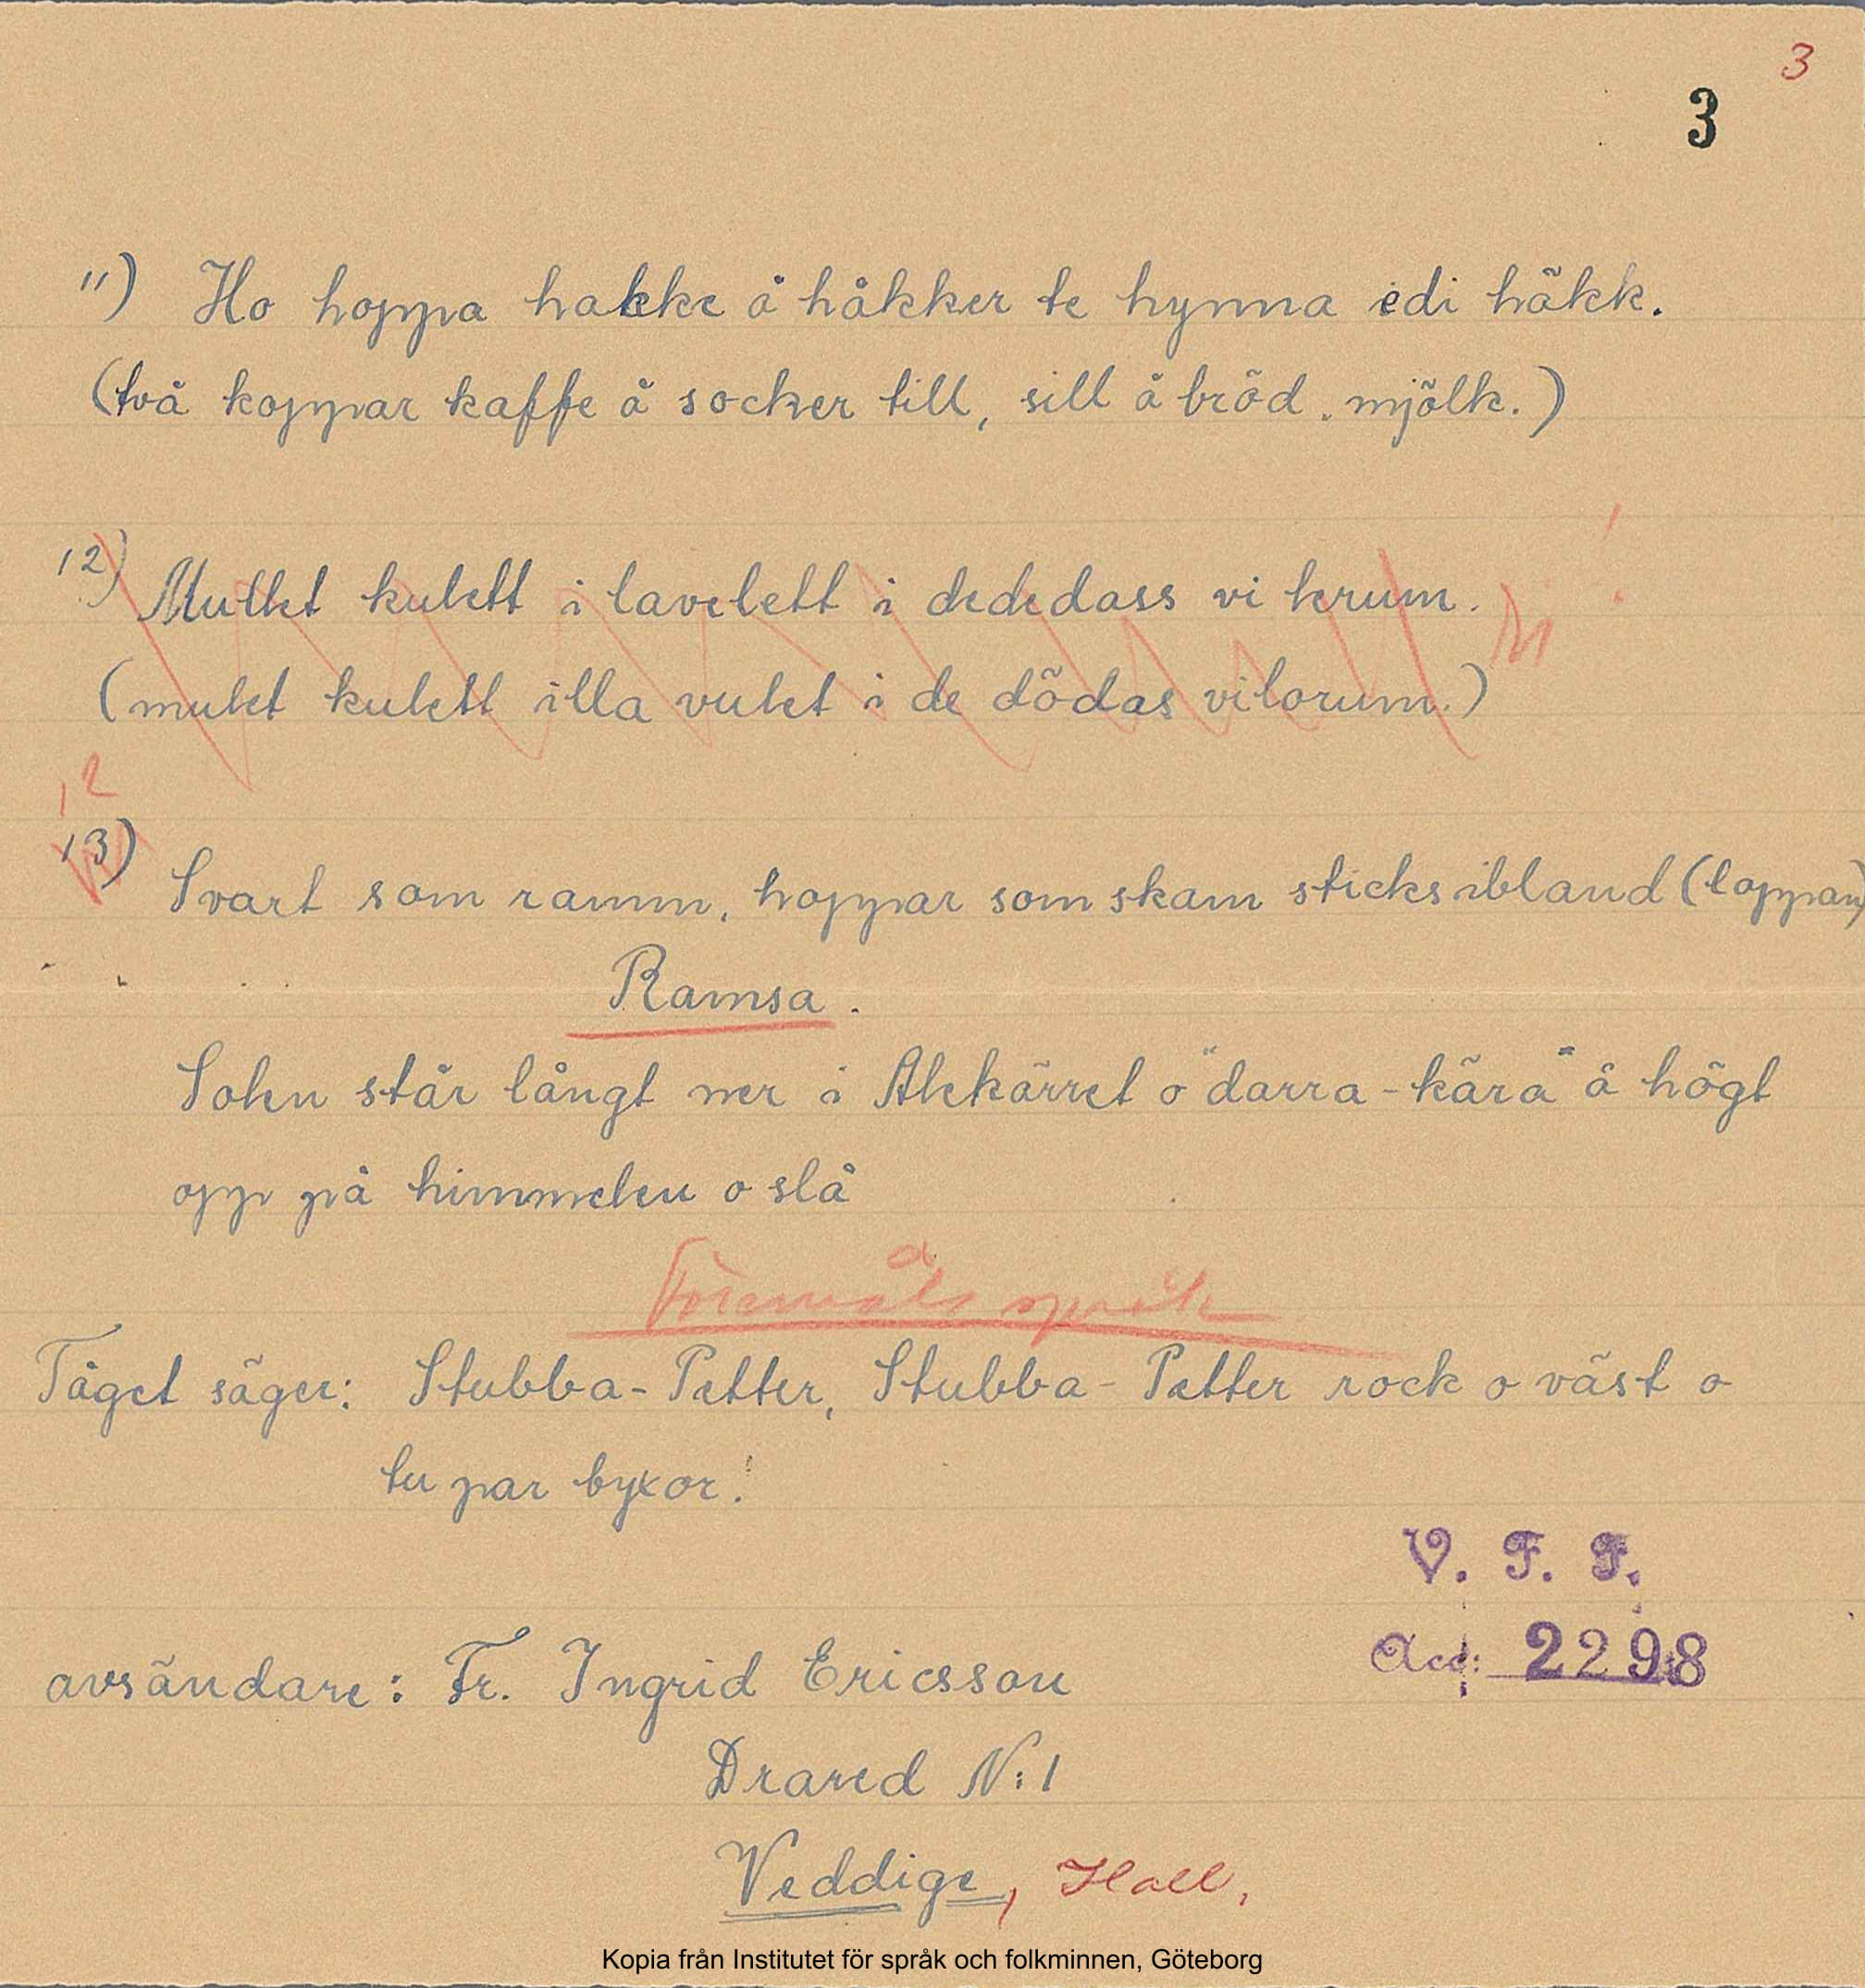 3
3
11) Ho hoppa hakke å håkker te hynna idi häkk.
(två koppar kaffe å socker till, sill å bröd. mjölk.)
12) Mullet kulett i lavelett i dededass vi lerum.
(mulet kulett illa vulet i de dödas vilorum.)
12
13) Svart som ramm, hoppar som skam sticks ibland (loppan)
Ramsa.
Solen står långt ner i Alekärret o "darra-kära" å högt
opp på himmelen o slå
Föremåls språk
Tåget säger: Stubba-Petter, Stubba-Petter rock o väst o
tu par byxor!
V. F. F.
Acc: 2298
avsändare: Fr. Ingrid Ericsson
Draved N:1
Veddige, Hall,
Kopia från Institutet för språk och folkminnen, Göteborg